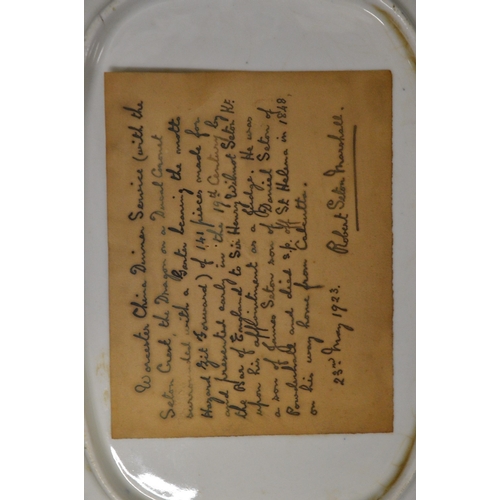 Worcester China Dinner Service (with the
Seton Crest the Dragon on a Ducal Coronet
surrounded with a Garter bearing the motto
Hazard Zit Forward) of 141 pieces made for
and presented early in the 19th Century by
the Bar of England to Sir Henry Wilmot Seton Kt.
upon his appointment as a Judge. He was
a son of James Seton son of Daniel Seton of
Powderhall and died s.p. off St Helena in 1848,
on his way home from Calcutta.
23rd May 1923. Robert Seton Marshall.